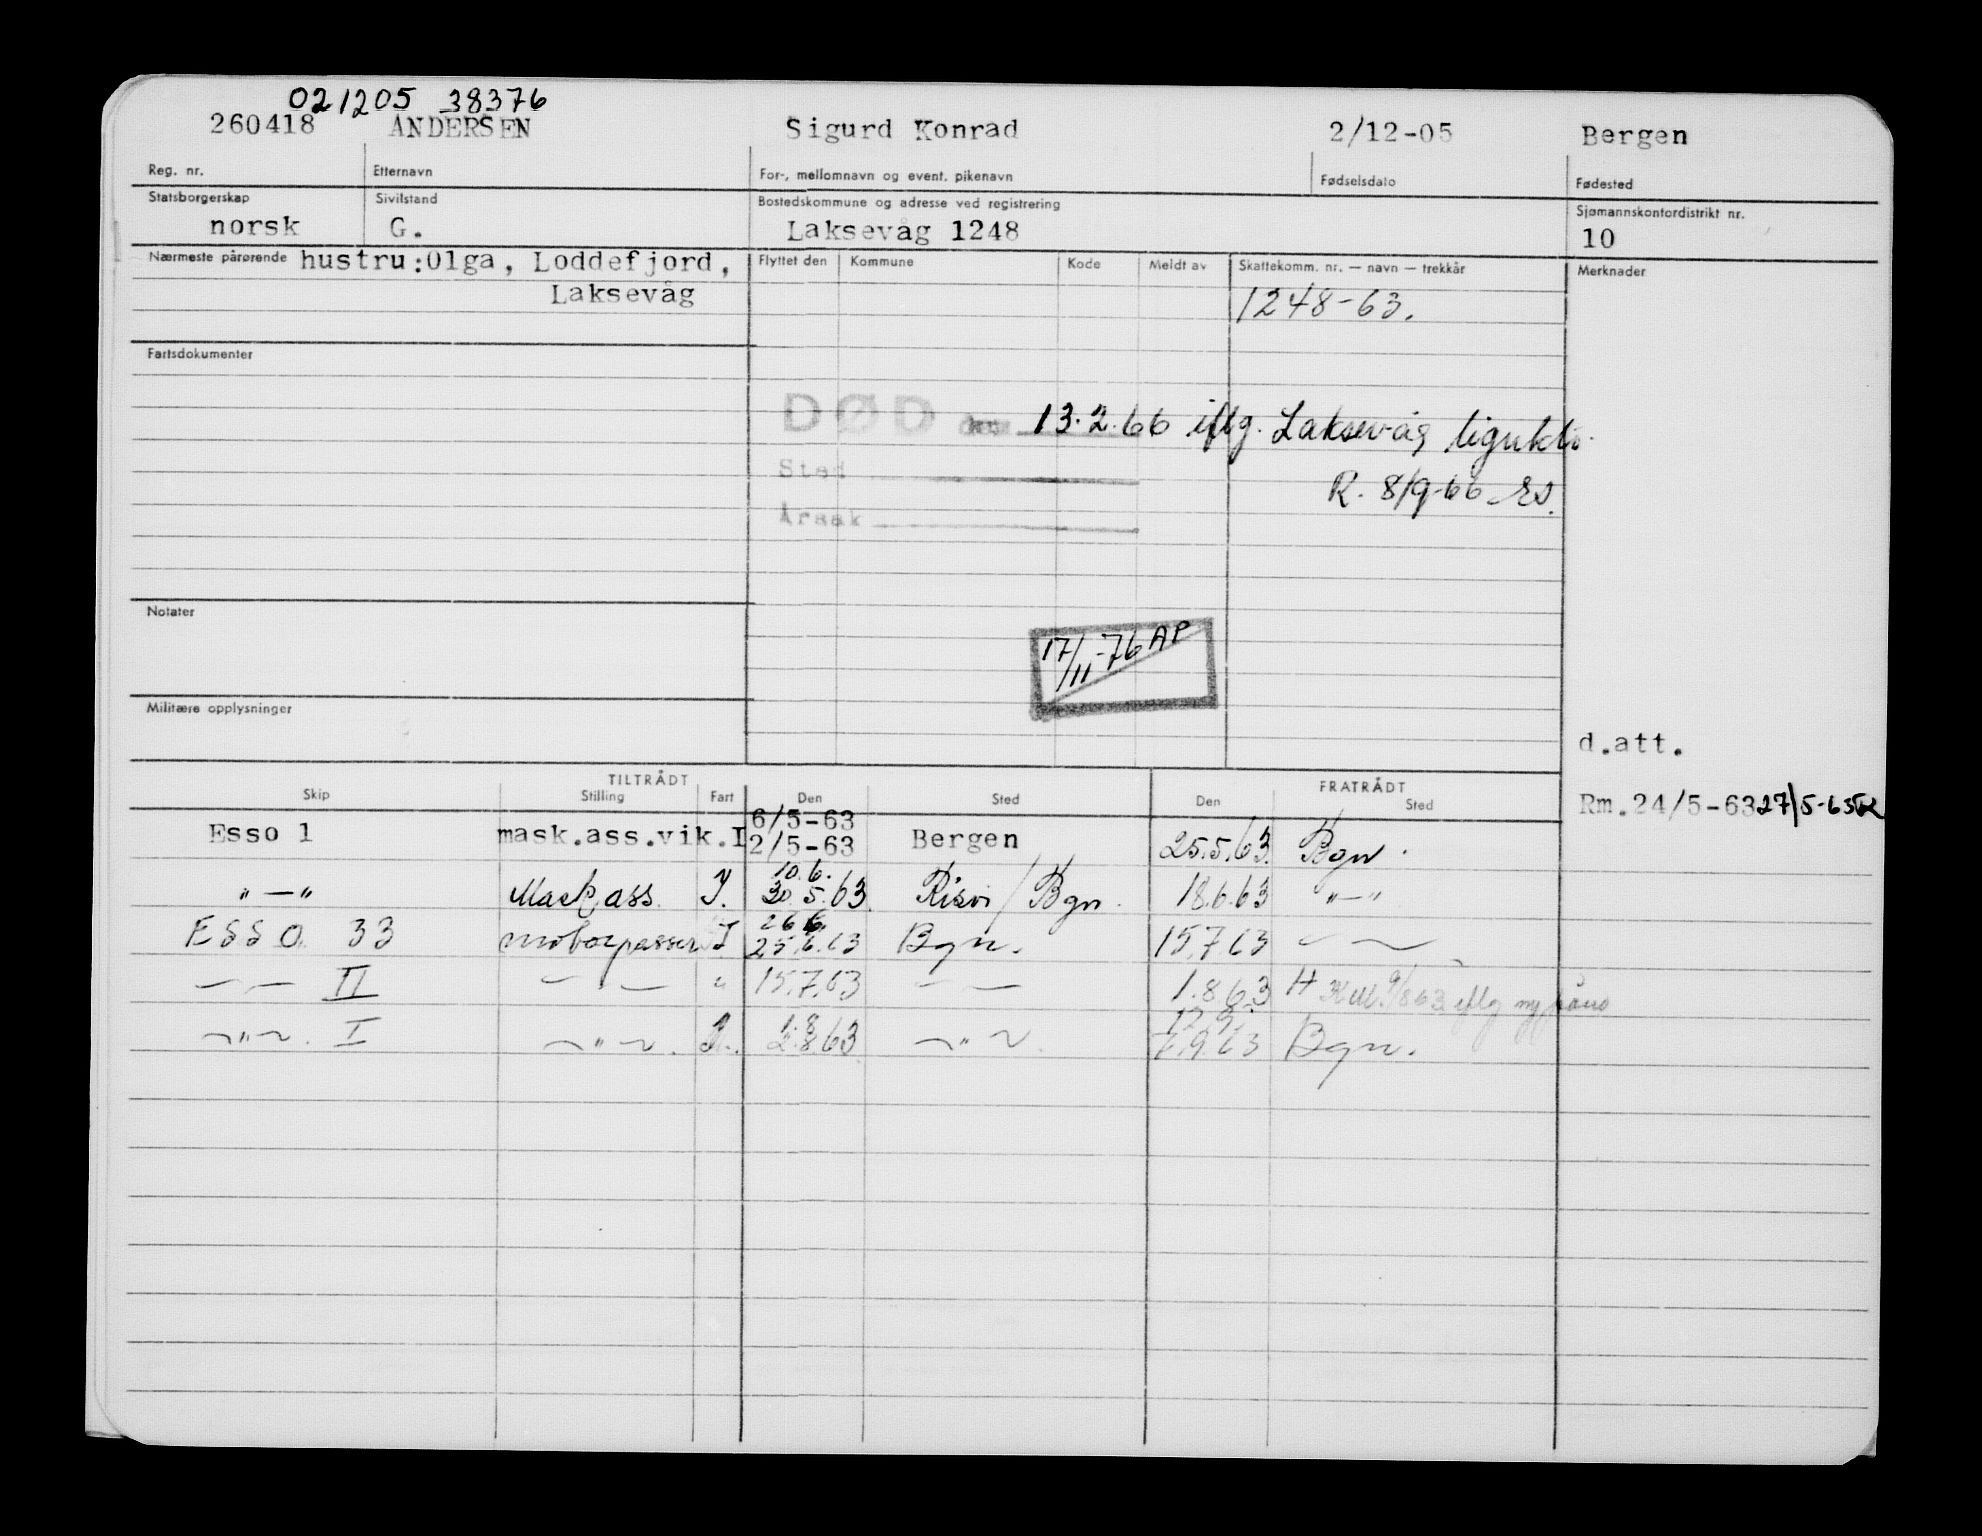 021205 38376
260418 ANDERSEN Sigurd Konrad 2/12-05 Bergen
Reg. nr. Etternavn For-, mellomnavn og event. pikenavn Fødselsdato Fødested
Statsborgerskap Sivilstand Bostedskommune og adresse ved registrering Sjømannskontordistrikt nr.
norsk G. Laksevåg 1248 10
Nærmeste pårørende hustru:Olga, Loddefjord, Flyttet den Kommune Kode Meldt av Skattekomm. nr. — navn — trekkår Merknader
Laksevåg 1248-63.
Fartsdokumenter
DØD den 13.2.66 iflg. Laksevåg
Sted R. 8/9-66
Årsak
Notater
17/11-76 AP
Militære opplysninger
d.att.
TILTRÅDT FRATRÅDT
Skip Stilling Fart Den Sted Den Sted
Rm.24/5-63 27/5-63
6/5-63
Esso 1 mask.ass.vik.I 2/5-63 Bergen 25.5.63 Bgn.
10.6.
"—" Mask ass. I. 30.5.63 Risvi/Bgn. 18.6.63 "—"
26 6.
ESSO 33 motorpasser I 25.6.63 Bgn. 15.7.63 — —
— — II — — " 15.7.63 — — 1.8.63 H
1.8 12.9.
—"— I —"—. 2.8.63 —"— 9.63 Bgn.